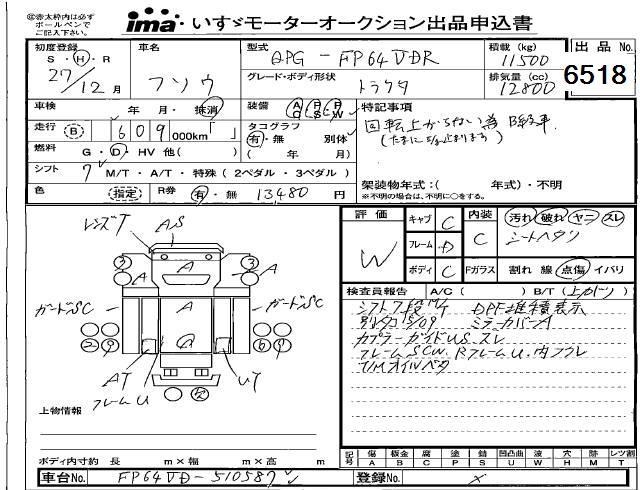 ㊟赤太枠内は必ず
ボールペンで
ご記入下さい。
ima いすゞモーターオークション出品申込書
初度登録
S・H・R
27/12月
車名
フソウ
型式
QPG-FP64VDR
積載(kg)
11500
出品 No.
6518
グレード・ボディ形状
トラクタ
排気量(cc)
12800
車検
年 月・抹消
装備
A P P
C S W
特記事項
走行
B
609
000km「 」
タコグラフ
有・無 別体
( 年 月)
回転上がらない為 B検車
燃料
G・D・HV 他( )
シフト
7 M/T・A/T・特殊(2ペダル・3ペダル)
架装物年式:( 年式)・不明
※不明の場合は、不明に○をする。
色
(指定)
R券
有・無
13,480 円
評価
W
キャブ C
フレーム D
ボディ C
内装
C
汚れ 破れ ヤニ スレ
シートヘタリ
Fガラス
割れ 線 点傷 イバリ
検査員報告
A/C( )
B/T(上がり)
シフト7段M/T DPF堆積表示
別タコ15/09 ミラーカバーA
カプラーガイドUS.スレ
フレームSCW.RフレームU.内フクレ
T/Mオイルベタ
レンズT
AS
3
3
A
A
A
A
A
ガードSC
ガードSC
2
9
6
9
AT
フレームU
UT
上物情報
ボディ内寸約 長 m×幅 m×高 m
記号
傷 板金 腐 塗 錆 凹凸曲 波 穴 跡 レツ割
A B C P S U W H M T
車台No.
FP64VD-510587
登録No.